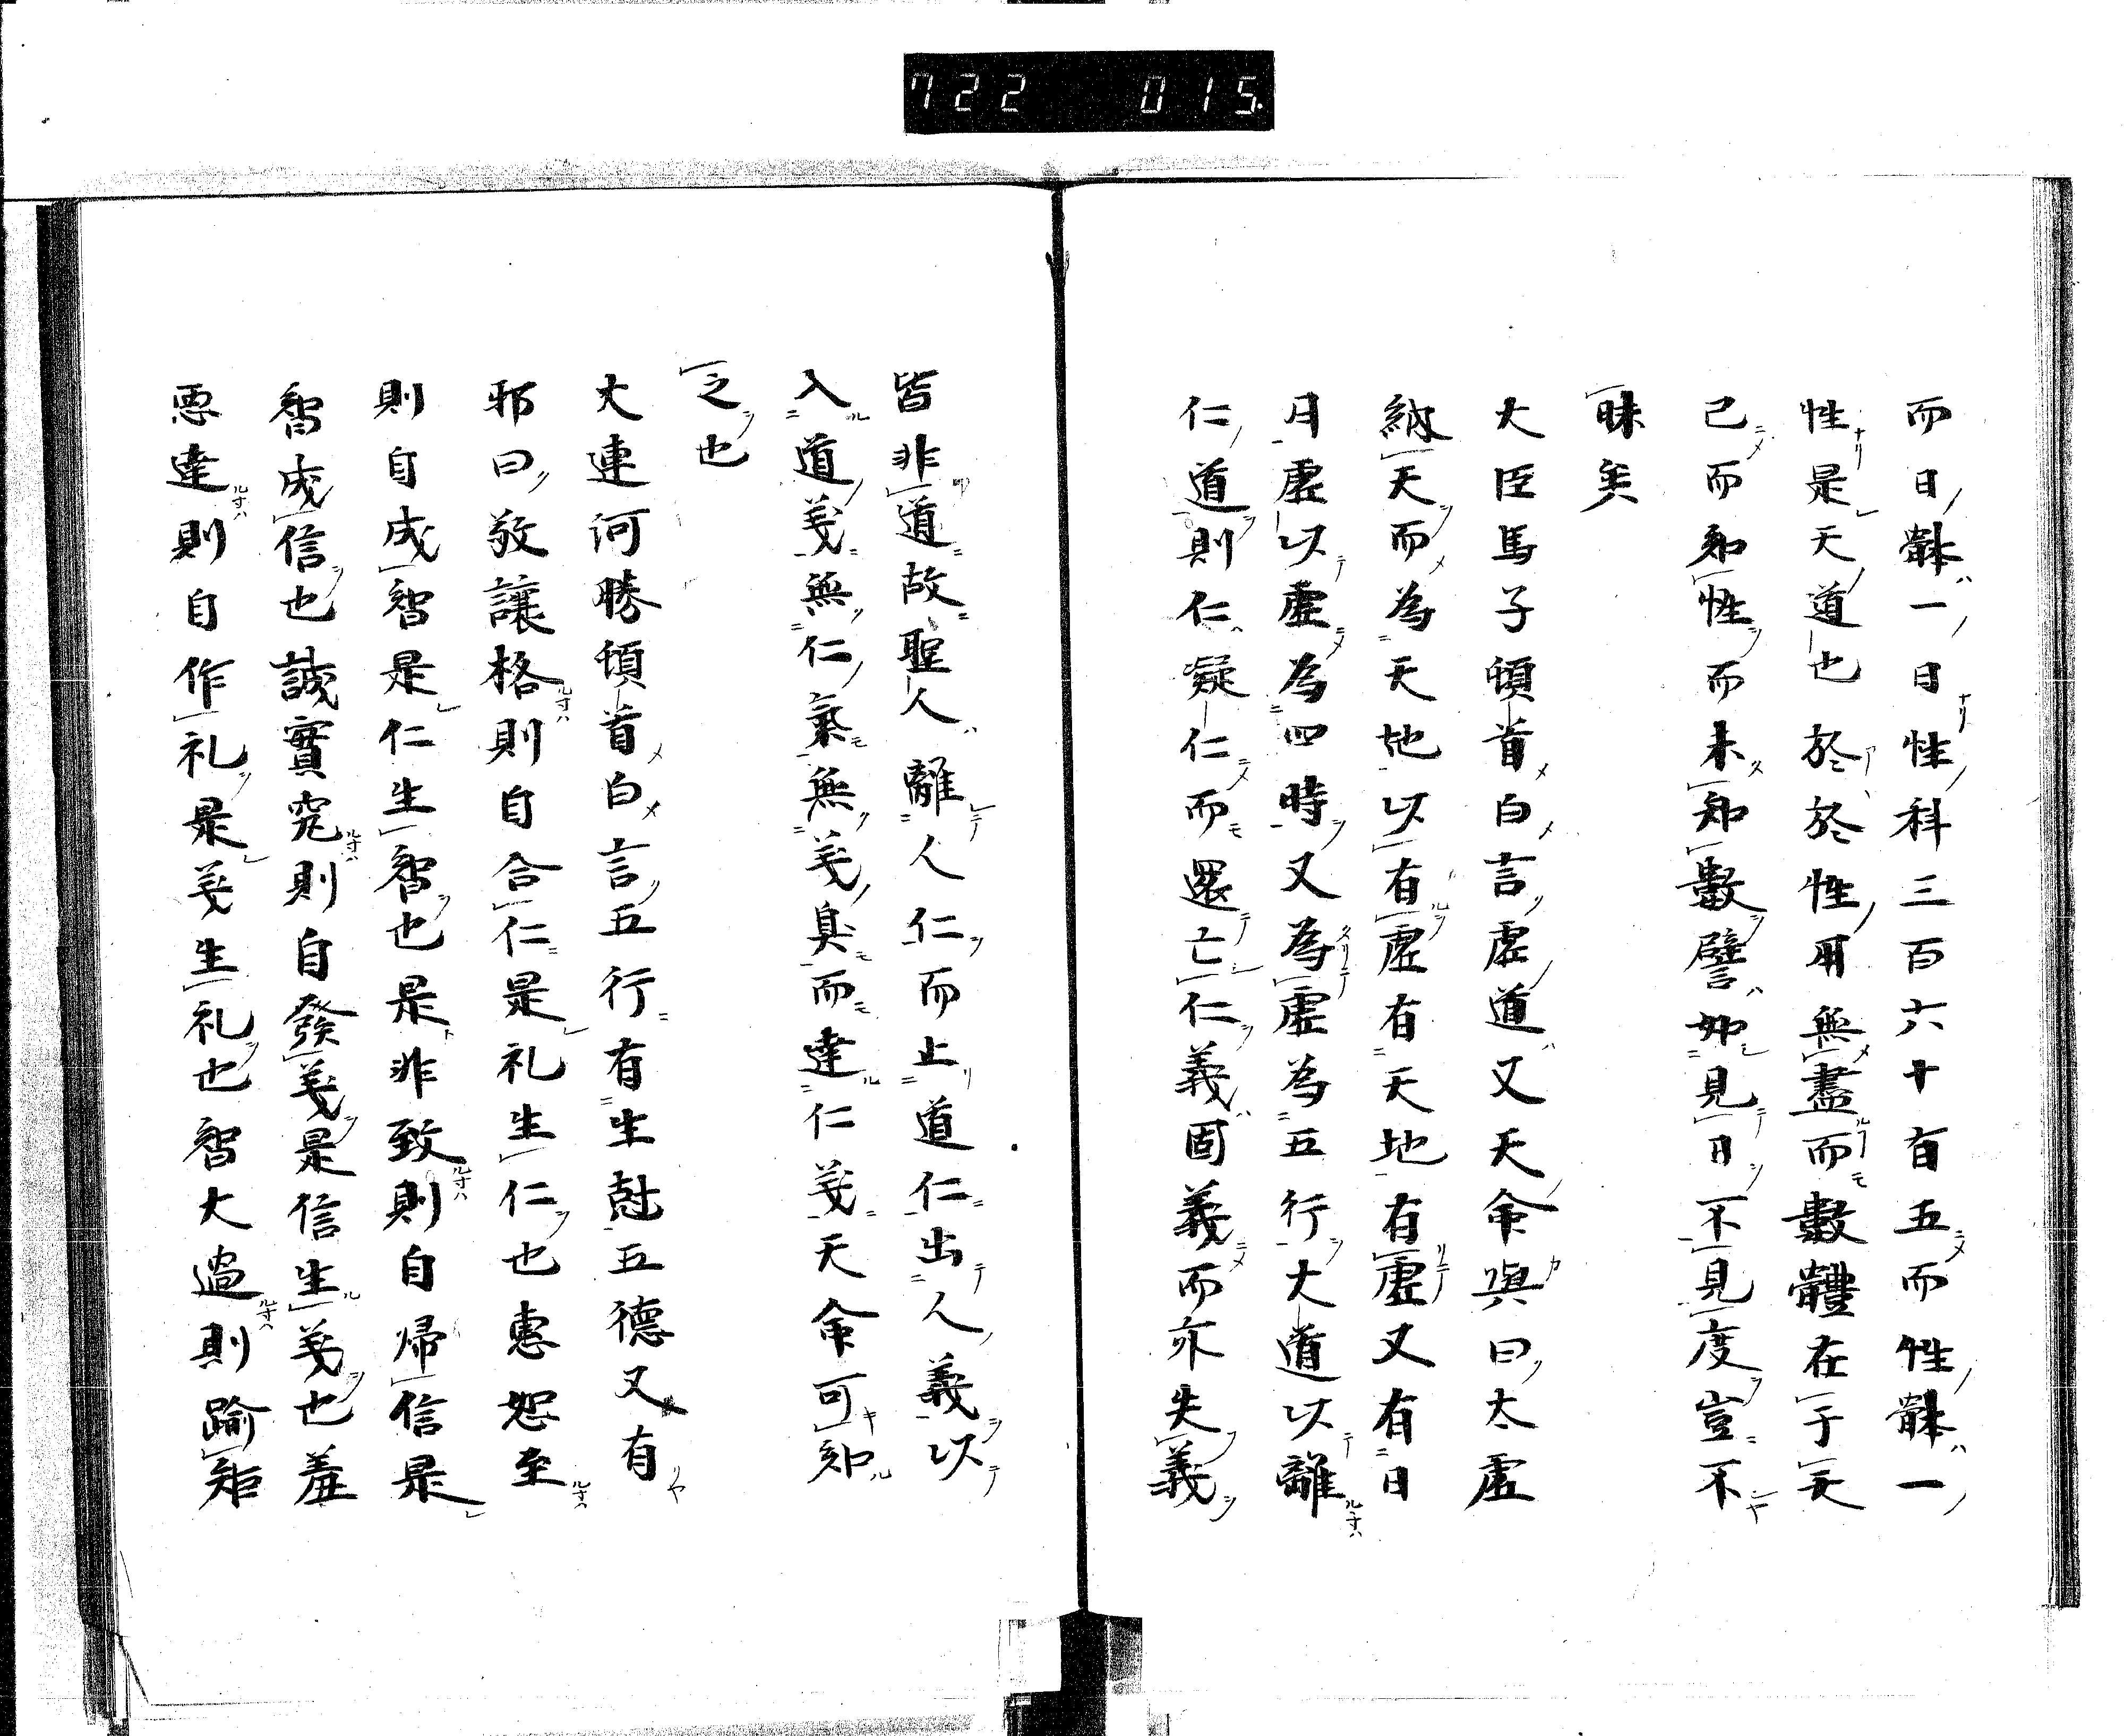 722 015.
而日體一日性科三百六十有五而性體一
性是天道也於於性用無盡而數體在于天
己而知性而未知數譬如見日不見度豈不
昧矣
大臣馬子頓首白言虛道又天命與曰太虛
納天而為天地以有虛有天地有虛又有日
月虛以虛為四時又為虛為五行大道以離
仁道則仁凝仁而還亡仁義固義而亦失義
皆非道故聖人離人仁而止道仁出人義以
入道義無仁氣無義臭而達仁義天命可知
之也
大連河勝頓首白言五行有生尅五德又有
邪曰敬讓格則自合仁是礼生仁也惠恕至
則自成智是仁生智也是非致則自帰信是
智成信也誠實究則自發義是信生義也羞
惡達則自作礼是義生礼也智大過則踰矩